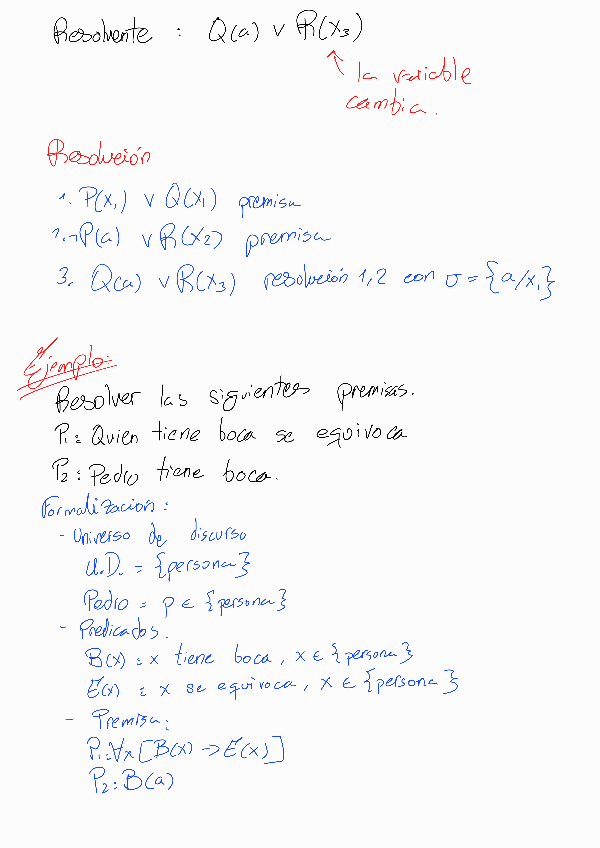 Resolvente : Q(a) ∨ R(x₃)
↑ la variable
cambia.
Resolución
1. P(x₁) ∨ Q(x₁) premisa
2. ¬P(a) ∨ R(x₂) premisa
3. Q(a) ∨ R(x₃) resolución 1,2 con σ = {a/x₁}
Ejemplo:
Resolver las siguientes premisas.
P₁: Quien tiene boca se equivoca
P₂: Pedro tiene boca.
Formalización:
- Universo de discurso
U.D. = {persona}
Pedro = p ∈ {persona}
- Predicados.
B(x) : x tiene boca, x ∈ {persona}
E(x) : x se equivoca, x ∈ {persona}
- Premisa:
P₁: ∀x [B(x) -> E(x)]
P₂: B(a)